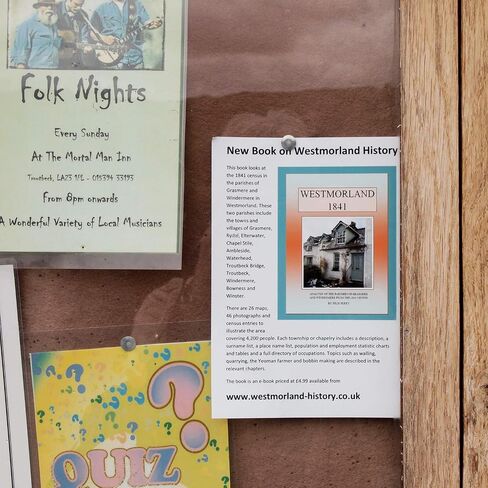 Folk Nights
Every Sunday
At The Mortal Man Inn
Troutbeck, LA23 1PL - 015394 33193
From 8pm onwards
A Wonderful Variety of Local Musicians
New Book on Westmorland History
This book looks
at the 1841 census in
the parishes of
Grasmere and
Windermere in
Westmorland. These
two parishes include
the towns and
villages of Grasmere,
Rydal, Elterwater,
Chapel Stile,
Ambleside,
Waterhead,
Troutbeck Bridge,
Troutbeck,
Windermere,
Bowness and
Winster.
WESTMORLAND
1841
ANALYSIS OF THE PARISHES OF GRASMERE
AND WINDERMERE FROM THE 1841 CENSUS
There are 26 maps,
46 photographs and
census entries to
illustrate the area
covering 4,200 people. Each township or chapelry includes a description, a
surname list, a place name list, population and employment statistic charts
and tables and a full directory of occupations. Topics such as walling,
quarrying, the Yeoman farmer and bobbin making are described in the
relevant chapters.
The book is an e-book priced at £4.99 available from
www.westmorland-history.co.uk
?
QUIZ